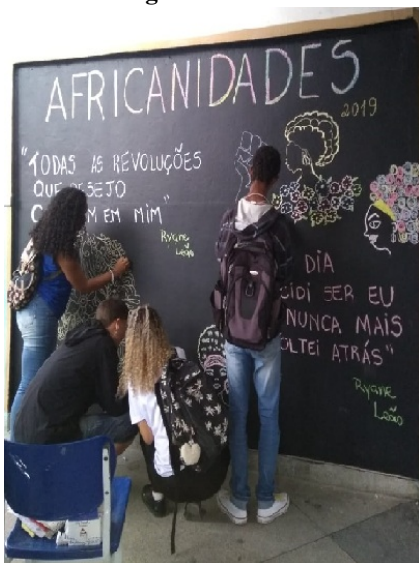 AFRICANIDADES
2019
"TODAS AS REVOLUÇÕES
QUE DESEJO
EM MIM"
Ryane
Leão
DIA
SER EU
NUNCA MAIS
ATRÁS"
Ryane
Leão